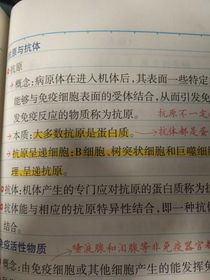 原与抗体
抗原
概念:病原体在进入机体后,其表面一些特定
能够与免疫细胞表面的受体结合,从而引发免
发免疫反应的物质称为抗原。
抗原不一定
本质:大多数抗原是蛋白质。
抗体都是蛋
抗原呈递细胞:B细胞、树突状细胞和巨噬细
理、呈递抗原。
抗体:机体产生的专门应对抗原的蛋白质称为抗
抗体能与相应的抗原特异性结合,即一种抗体
结合。
疫活性物质
唾液腺和泪腺等非免疫器官
概念:由免疫细胞或其他细胞产生的能发挥免